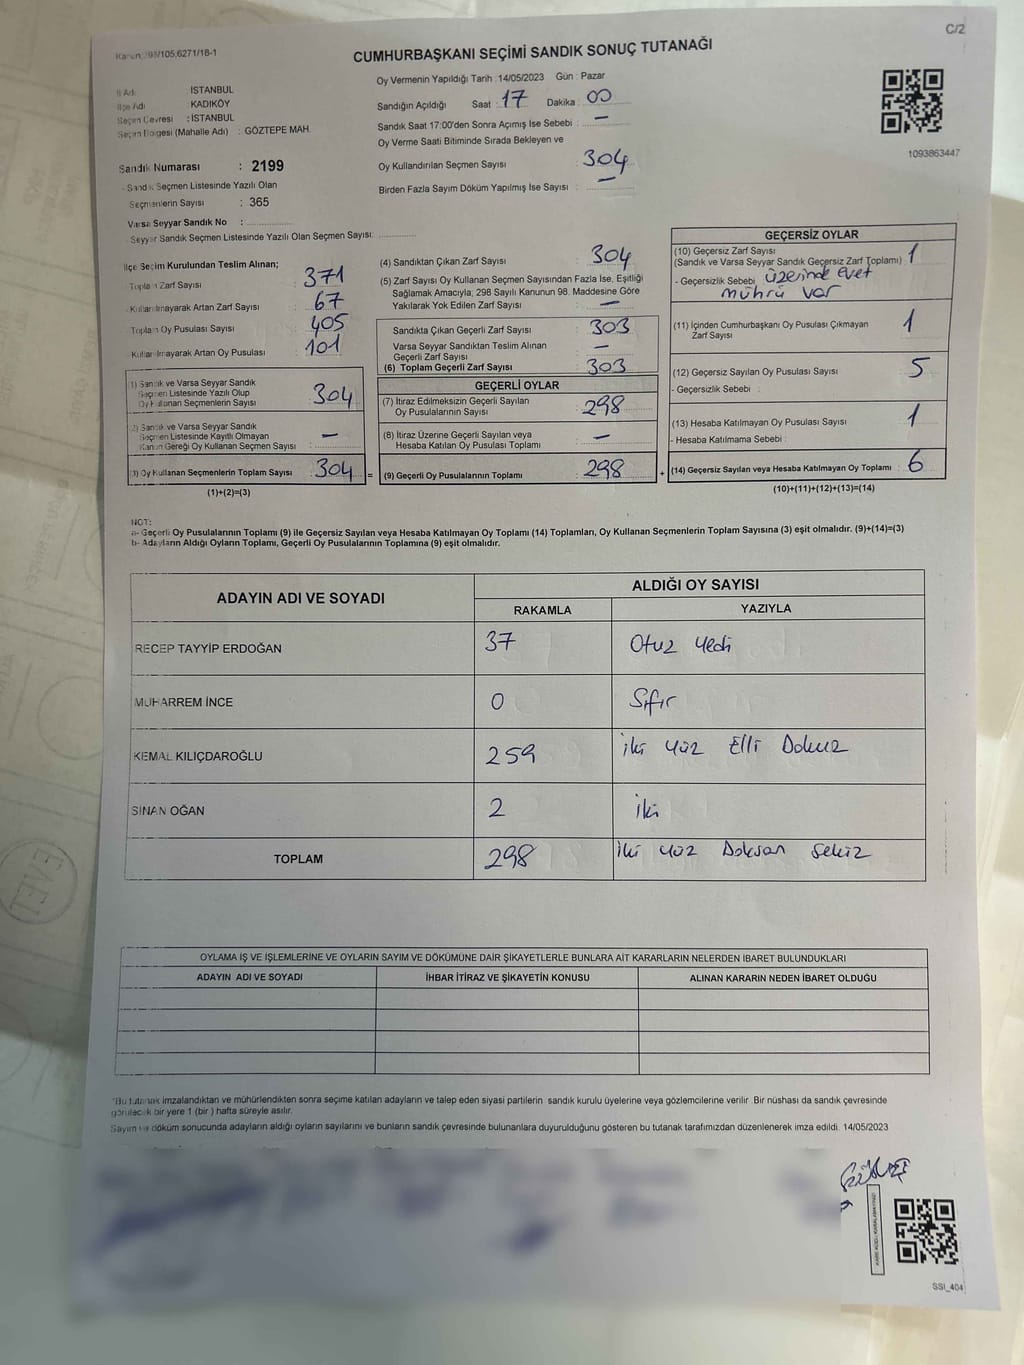 C/2
Kanun, 298/105,6271/18-1
CUMHURBAŞKANI SEÇİMİ SANDIK SONUÇ TUTANAĞI
Oy Vermenin Yapıldığı Tarih :14/05/2023 Gün : Pazar
İl Adı : İSTANBUL
İlçe Adı : KADIKÖY
Seçim Çevresi : İSTANBUL
Seçim Bölgesi (Mahalle Adı) : GÖZTEPE MAH.
Sandığın Açıldığı Saat : 17 Dakika : 00
Sandık Saat 17:00'den Sonra Açımış İse Sebebi : —
Oy Verme Saati Bitiminde Sırada Bekleyen ve
Oy Kullandırılan Seçmen Sayısı : 304
Birden Fazla Sayım Döküm Yapılmış İse Sayısı : —
1093863447
Sandık Numarası : 2199
- Sandık Seçmen Listesinde Yazılı Olan
Seçmenlerin Sayısı : 365
Varsa Seyyar Sandık No :
- Seyyar Sandık Seçmen Listesinde Yazılı Olan Seçmen Sayısı:
İlçe Seçim Kurulundan Teslim Alınan;
Toplam Zarf Sayısı : 371
Kullanılmayarak Artan Zarf Sayısı : 67
Toplam Oy Pusulası Sayısı : 405
Kullanılmayarak Artan Oy Pusulası : 101
1) Sandık ve Varsa Seyyar Sandık
Seçmen Listesinde Yazılı Olup
Oy Kullanan Seçmenlerin Sayısı : 304
2) Sandık ve Varsa Seyyar Sandık
Seçmen Listesinde Kayıtlı Olmayan
Kanun Gereği Oy Kullanan Seçmen Sayısı : —
3) Oy Kullanan Seçmenlerin Toplam Sayısı : 304 =
(1)+(2)=(3)
(4) Sandıktan Çıkan Zarf Sayısı : 304
(5) Zarf Sayısı Oy Kullanan Seçmen Sayısından Fazla İse, Eşitliği
Sağlamak Amacıyla; 298 Sayılı Kanunun 98. Maddesine Göre
Yakılarak Yok Edilen Zarf Sayısı : —
Sandıkta Çıkan Geçerli Zarf Sayısı : 303
Varsa Seyyar Sandıktan Teslim Alınan
Geçerli Zarf Sayısı : —
(6) Toplam Geçerli Zarf Sayısı : 303
GEÇERLİ OYLAR
(7) İtiraz Edilmeksizin Geçerli Sayılan
Oy Pusulalarının Sayısı : 298
(8) İtiraz Üzerine Geçerli Sayılan veya
Hesaba Katılan Oy Pusulası Toplamı : —
(9) Geçerli Oy Pusulalarının Toplamı : 298 +
GEÇERSİZ OYLAR
(10) Geçersiz Zarf Sayısı
(Sandık ve Varsa Seyyar Sandık Geçersiz Zarf Toplamı) : 1
- Geçersizlik Sebebi : üzerinde evet
mührü var
(11) İçinden Cumhurbaşkanı Oy Pusulası Çıkmayan
Zarf Sayısı : 1
(12) Geçersiz Sayılan Oy Pusulası Sayısı : 5
- Geçersizlik Sebebi :
(13) Hesaba Katılmayan Oy Pusulası Sayısı : 1
- Hesaba Katılmama Sebebi :
(14) Geçersiz Sayılan veya Hesaba Katılmayan Oy Toplamı : 6
(10)+(11)+(12)+(13)=(14)
NOT:
a- Geçerli Oy Pusulalarının Toplamı (9) ile Geçersiz Sayılan veya Hesaba Katılmayan Oy Toplamı (14) Toplamları, Oy Kullanan Seçmenlerin Toplam Sayısına (3) eşit olmalıdır. (9)+(14)=(3)
b- Adayların Aldığı Oyların Toplamı, Geçerli Oy Pusulalarının Toplamına (9) eşit olmalıdır.
ADAYIN ADI VE SOYADI
ALDIĞI OY SAYISI
RAKAMLA YAZIYLA
RECEP TAYYİP ERDOĞAN 37 Otuz Yedi
MUHARREM İNCE 0 Sıfır
KEMAL KILIÇDAROĞLU 259 İki Yüz Elli Dokuz
SİNAN OĞAN 2 İki
TOPLAM 298 İki Yüz Doksan Sekiz
OYLAMA İŞ VE İŞLEMLERİNE VE OYLARIN SAYIM VE DÖKÜMÜNE DAİR ŞİKAYETLERLE BUNLARA AİT KARARLARIN NELERDEN İBARET BULUNDUKLARI
ADAYIN ADI VE SOYADI İHBAR İTİRAZ VE ŞİKAYETİN KONUSU ALINAN KARARIN NEDEN İBARET OLDUĞU
*Bu tutanak imzalandıktan ve mühürlendikten sonra seçime katılan adayların ve talep eden siyasi partilerin sandık kurulu üyelerine veya gözlemcilerine verilir. Bir nüshası da sandık çevresinde
görülecek bir yere 1 (bir ) hafta süreyle asılır.
Sayım ve döküm sonucunda adayların aldığı oyların sayılarını ve bunların sandık çevresinde bulunanlara duyurulduğunu gösteren bu tutanak tarafımızdan düzenlenerek imza edildi. 14/05/2023
KARE KODU KARALAMAYINIZ!
SSI_404
EVET